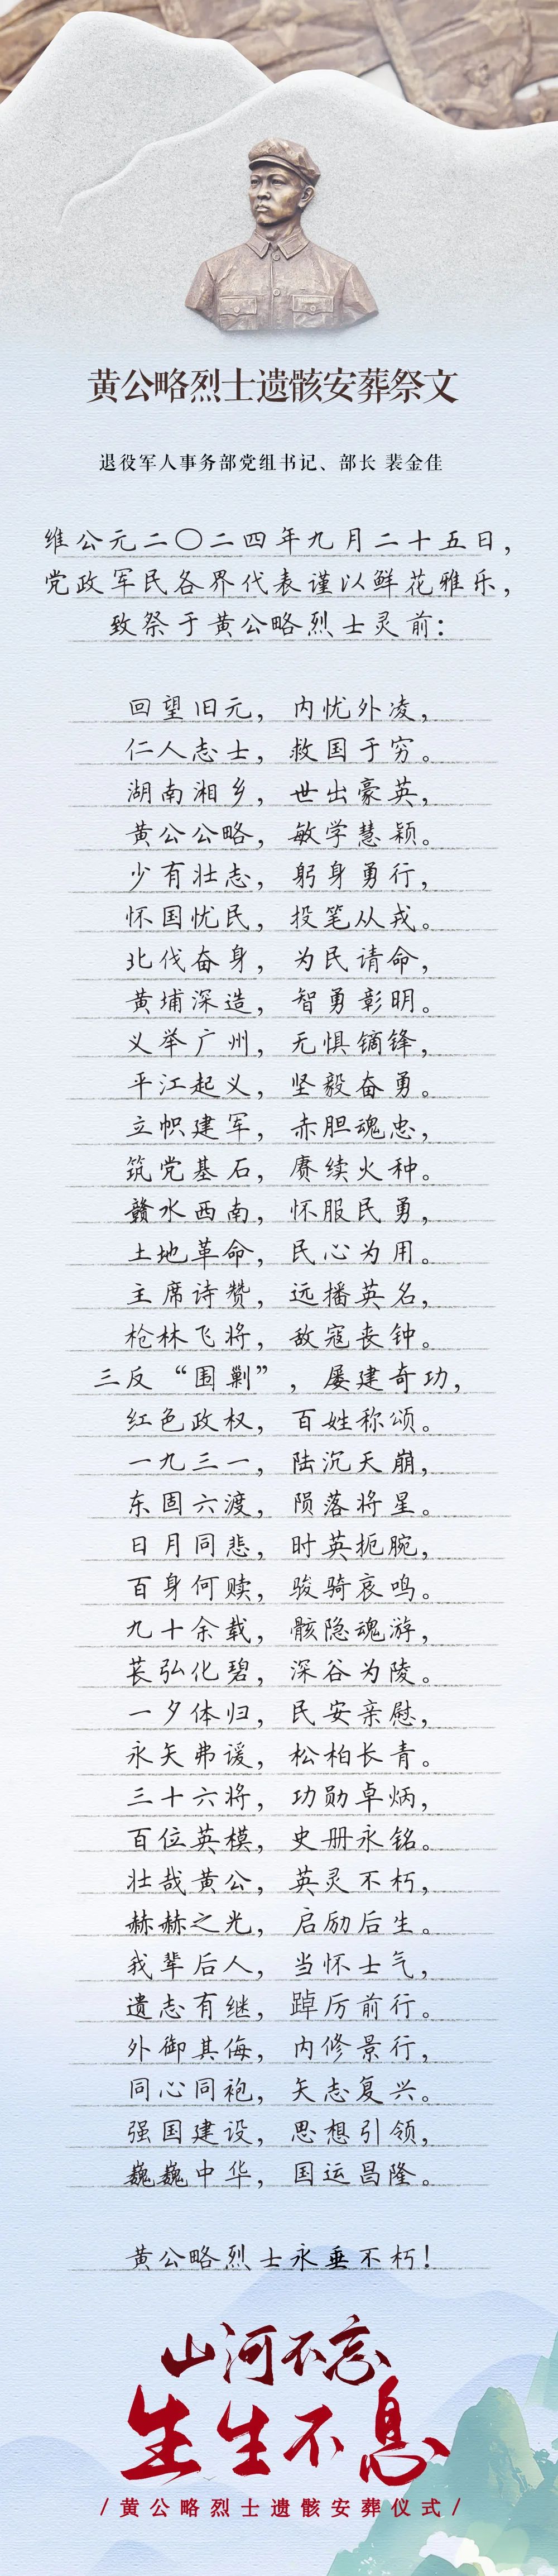 黄公略烈士遗骸安葬祭文
退役军人事务部党组书记、部长 裴金佳
维公元二〇二四年九月二十五日，
党政军民各界代表谨以鲜花雅乐，
致祭于黄公略烈士灵前：
回望旧元，内忧外凌，
仁人志士，救国于穷。
湖南湘乡，世出豪英，
黄公公略，敏学慧颖。
少有壮志，躬身勇行，
怀国忧民，投笔从戎。
北伐奋身，为民请命，
黄埔深造，智勇彰明。
义举广州，无惧镝锋，
平江起义，坚毅奋勇。
立帜建军，赤胆魂忠，
筑党基石，赓续火种。
赣水西南，怀服民勇，
土地革命，民心为用。
主席诗赞，远播英名，
枪林飞将，敌寇丧钟。
三反“围剿”，屡建奇功，
红色政权，百姓称颂。
一九三一，陆沉天崩，
东固六渡，陨落将星。
日月同悲，时英扼腕，
百身何赎，骏骑哀鸣。
九十余载，骸隐魂游，
苌弘化碧，深谷为陵。
一夕体归，民安亲慰，
永矢弗谖，松柏长青。
三十六将，功勋卓炳，
百位英模，史册永铭。
壮哉黄公，英灵不朽，
赫赫之光，启励后生。
我辈后人，当怀士气，
遗志有继，踔厉前行。
外御其侮，内修景行，
同心同袍，矢志复兴。
强国建设，思想引领，
巍巍中华，国运昌隆。
黄公略烈士永垂不朽！
山河不忘
生生不息
/黄公略烈士遗骸安葬仪式/